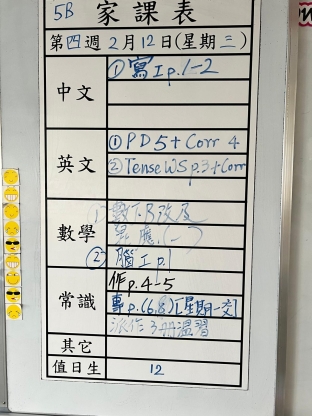 5B 家課表
第四週2月12日(星期三)
中文 ①寫工p.1-2
英文 ①PD5+Corr 4
②Tense WS p.3+Corr
數學 ① 數下B改及
(一)
② 腦工p.1
常識 作p.4-5
專p.(6,8)[星期一交]
派作3冊溫習
其它
值日生 12